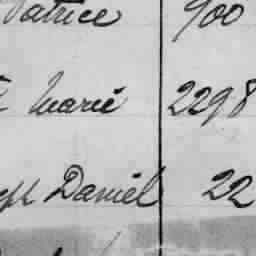 Patrice 900
Marie 2298
Daniel 22